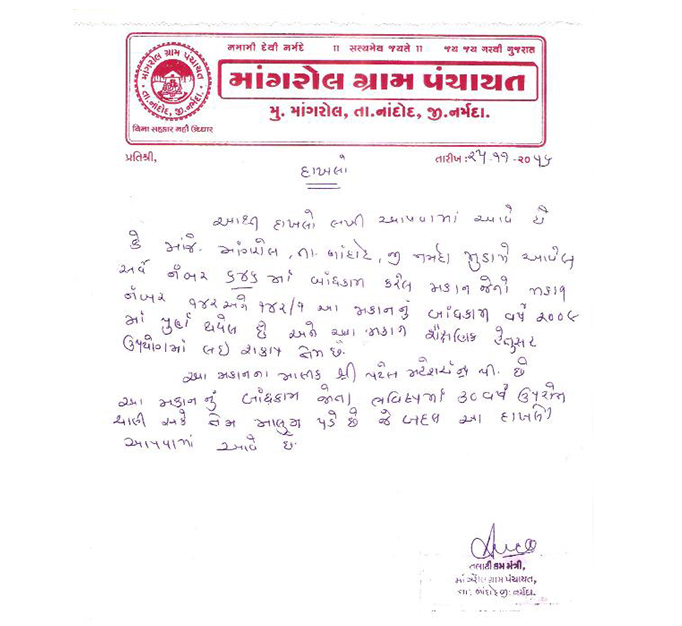 નમામી દેવી નર્મદે ।। સત્યમેવ જયતે ।। જય જય ગરવી ગુજરાત
માંગરોલ ગ્રામ પંચાયત
મુ. માંગરોલ, તા.નાંદોદ, જી.નર્મદા.
માંગરોલ ગ્રામ પંચાયત
તા.નાંદોદ, જી.નર્મદા.
વિના સહકાર નહીં ઉધ્ધાર
પ્રતિશ્રી, તારીખ:૨૫-૧૧-૨૦૧૫
દાખલો
આથી દાખલો લખી આપવામાં આવે છે
કે મોજે. માંગરોલ, તા. નાંદોદ, જી નર્મદા મુકામે આવેલ
સર્વે નંબર ૬૪૬ માં બાંધકામ કરેલ મકાન જેનો મકાન
નંબર ૧૪૨ અને ૧૪૨/૧ આ મકાનનું બાંધકામ વર્ષ ૨૦૦૯
માં પુર્ણ થયેલ છે અને આ મકાન શૈક્ષણિક હેતુસર
ઉપયોગમાં લઇ શકાય તેમ છે.
આ મકાનના માલીક શ્રી પટેલ વી. છે
આ મકાનનું બાંધકામ જોતા ભવિષ્યમાં ૩૦ વર્ષ ઉપરાંત
ચાલી શકે તેમ માલુમ પડે છે જે બદલ આ દાખલો
આપવામાં આવે છે.
તલાટી કમ મંત્રી,
માંગરોલ ગ્રામ પંચાયત,
તા. નાંદોદ જી. નર્મદા.